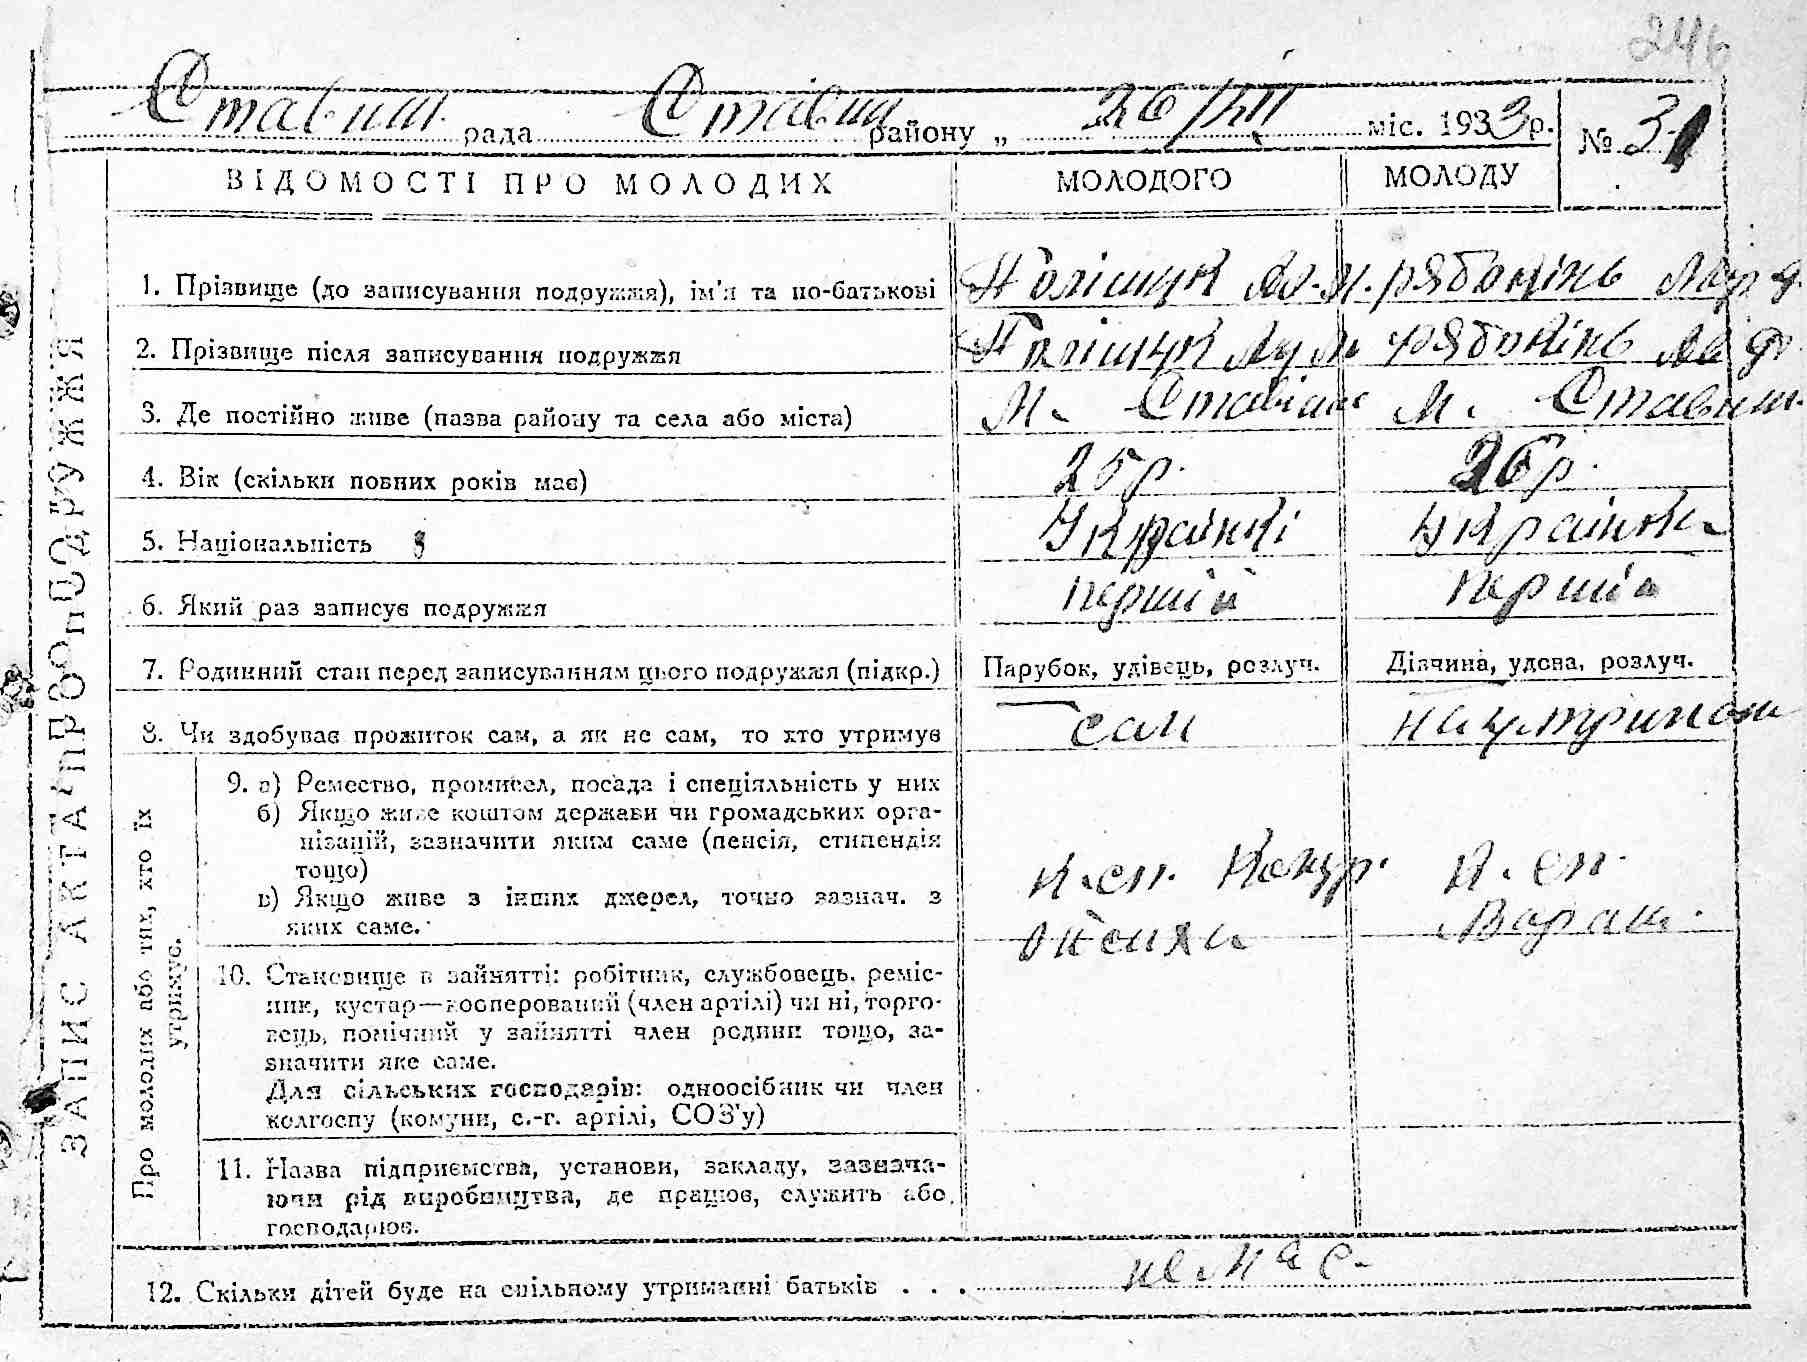 246
Ставищ. рада Ставищ району „ 26/VII міс. 1933 р. № 31
ВІДОМОСТІ ПРО МОЛОДИХ МОЛОДОГО МОЛОДУ
1. Прізвище (до записування подружжя), ім'я та по-батькові Поліщук
2. Прізвище після записування подружжя Поліщук
3. Де постійно живе (назва району та села або міста) М. Ставище М. Ставищ.
4. Вік (скільки повних років має) 25 р. 26 р.
5. Національність Українці Українка
6. Який раз записує подружжя перший перший
7. Родинний стан перед записуванням цього подружжя (підкр.) Парубок, удівець, розлуч. Дівчина, удова, розлуч.
8. Чи здобуває прожиток сам, а як не сам, то хто утримує сам
9. а) Ремество, промисел, посада і спеціяльність у них
б) Якщо живе коштом держави чи громадських орга-
нізацій, зазначити яким саме (пенсія, стипендія
тощо)
в) Якщо живе з інших джерел, точно зазнач. з
яких саме.
10. Становище в зайнятті: робітник, службовець, реміс-
ник, кустар—кооперований (член артілі) чи ні, торго-
вець, помічний у зайнятті член родини тощо, за-
значити яке саме.
Для сільських господарів: одноосібник чи член
колгоспу (комуни, с.-г. артілі, СОЗ'у)
11. Назва підприємства, установи, закладу, зазнача-
ючи рід виробництва, де працює, служить або
господарює.
12. Скільки дітей буде на спільному утриманні батьків . . . не має.
ЗАПИС АКТА ПРО ПОДРУЖЖЯ
Про молодих або тих, хто їх
утримує.